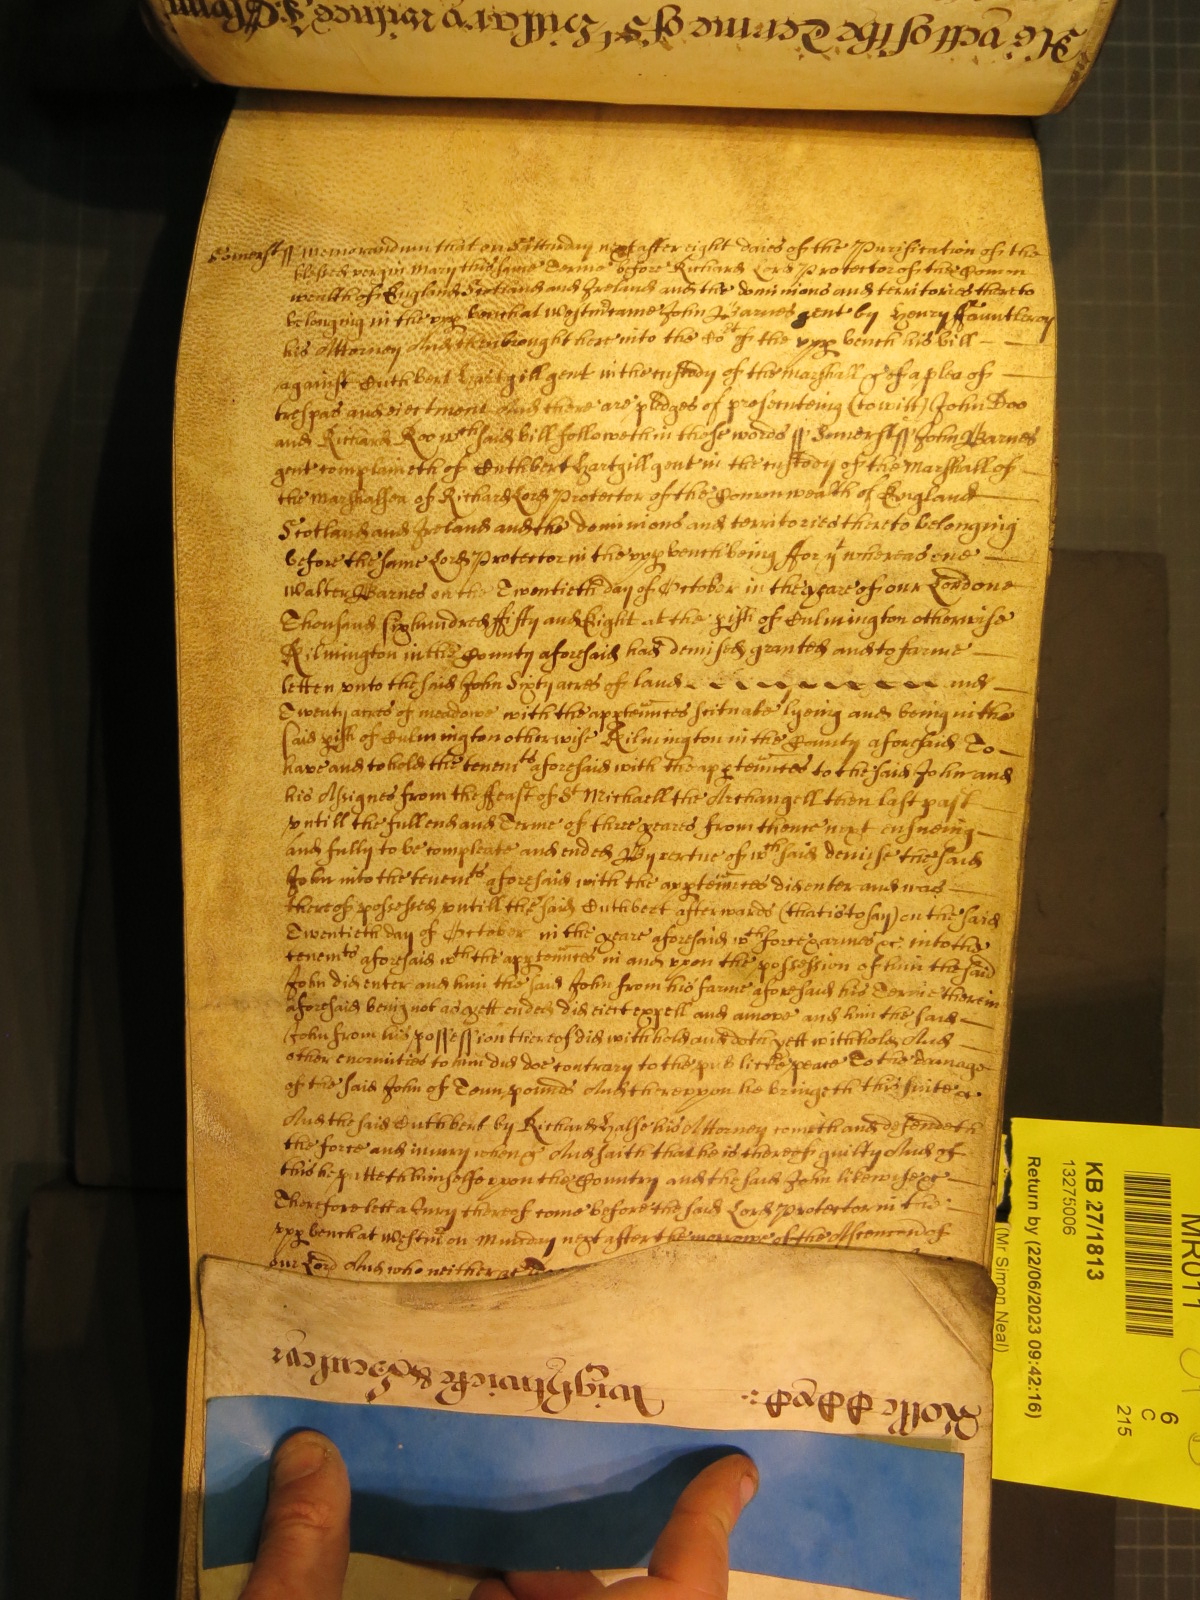 He yett of the Terme of St Hillary
Somerst ss Memorandum that on Satturday next after eight daies of the Purification of the
blessed vergin Mary this same Terme before Richard Lord Protector of the Comon
wealth of England Scotland and Ireland and the dominions and territories thereto
belonging in the upp bench at Westmr came John Barnes gent by Henry Fauntleroy
his Attorney And then brought here into the Cort of the upp bench his bill
against Cuthbert Hartgill gent in the custody of the Marshall &c of a plea of
trespas and eiectment And there are pledges of prosecuteing (to witt) John Doo
and Richard Roo wch said bill followeth in these words ss Somerst ss John Barnes
gent complaineth of Cuthbert Hartgill gent in the custody of the Marshall of
the Marshalsea of Richard Lord Protector of the Comonwealth of England
Scotland and Ireland and the dominions and territories thereto belonging
before the same Lord Protector in the upp bench being ffor yt whereas one
Walter Barnes on the Twentieth day of October in the yeare of our Lord one
Thousand six hundred ffifty and Eight at the pish of Culmington otherwise
Kilmington in the County aforesaid had demised granted and to farme
letten unto the said John Sixty acres of land and
Twenty acres of meadowe with the apptennces scituate lyeing and being in the
said pish of Culmington otherwise Kilmington in the County aforesaid To
have and to hold the tenemts aforesaid with the apptennces to the said John and
his Assignes from the ffeast of St Michaell the Archangell then last past
untill the full end and Terme of three yeares from thence next ensueing
and fully to be compleate and ended By vertue of wch said demise the said
John into the tenemts aforesaid with the apptennces did enter and was
thereof possessed untill the said Cuthbert afterwards (that is to say) on the said
Twentieth day of October in the yeare aforesaid wth force & armes &c into the
tenemts aforesaid wth the apptennces in and upon the possession of him the said
John did enter and him the said John from his farme aforesaid his Terme therein
aforesaid being not as yett ended did eiect expell and amove and him the said
John from his possession thereof did withhold and doth yett withhold And
other enormities to him did doe contrary to the publicke peace To the damage
of the said John of Tenn pounds And thereupon he bringeth this suite &c
And the said Cuthbert by Richard Halse his Attorney cometh and defendeth
the force and iniury when &c And saith that he is thereof guilty And of
this he putteth himselfe upon the Country and the said John likewise &c
Therefore lett a Iury thereof come before the said Lord Protector in the
upp bench at Westmr on Munday next after the morrowe of the Ascencon of
our Lord And who neither &c
Wightwicke &
Rolle
MR011
KB 27/1813
13275006
Return by (22/06/2023 09:42:16)
(Mr Simon Neal)
6
C
215